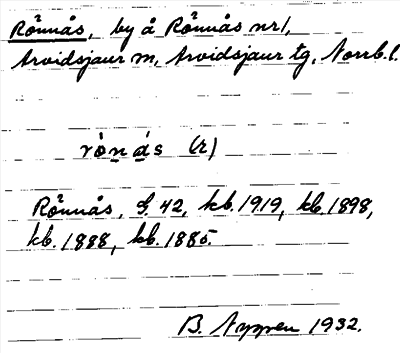 Rönnås, by å Rönnås nr 1,
Arvidsjaur sn, Arvidsjaur tg, Norrb. l.
rònás (r)
Rönnås, G. 42, kb. 1919, kb. 1898,
kb. 1888, kb. 1885.
B. Nygren 1932.